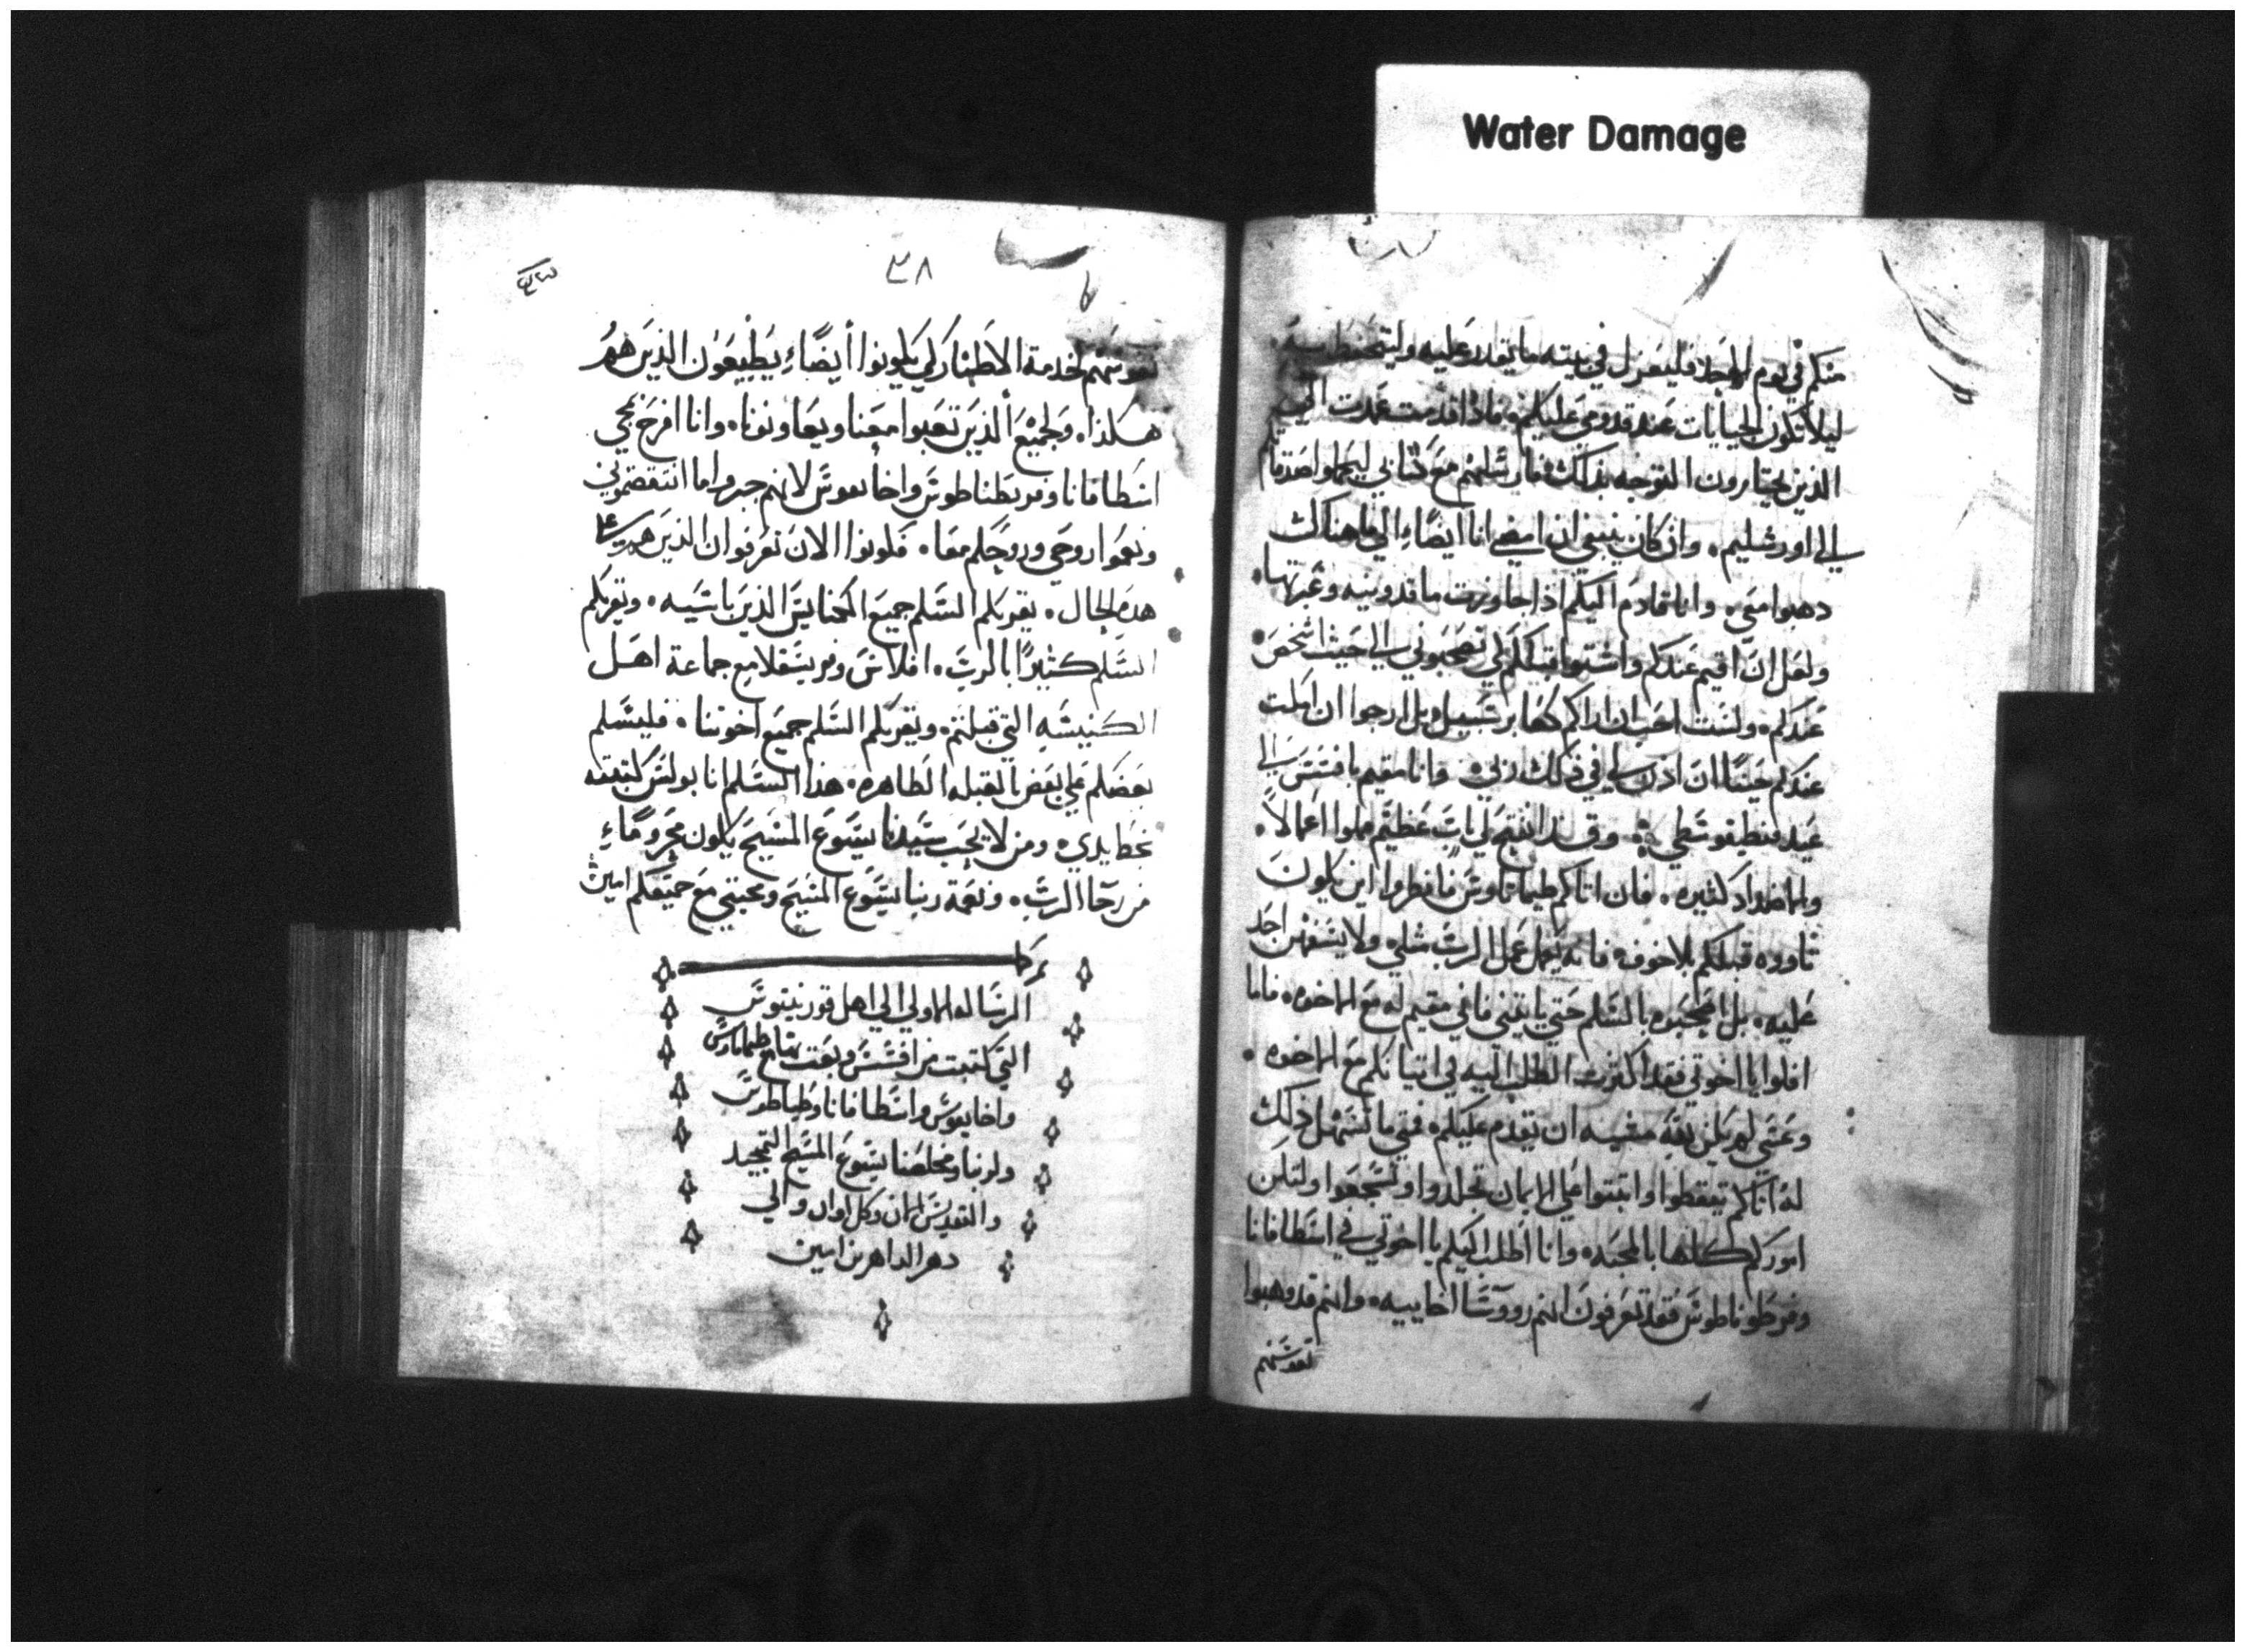 Water Damage
منكم في يوم الاحد فليعزل في بيته ما يقدر عليه وليتحفظ به
ليلا تكون الجبايات عند قدومي عليكم فاذا قدمت عمدت الي
الذين تختارون التوجه بذلك فارسلهم مع كتابي ليحملوا صدقاتكم
الي اورشليم وان كان ينبغي ان امضي انا ايضاً الي ما هناك
دهبوا معي وانا قادم اليكم اذا جاوزت ماقدونيه وعبرتها
ولعل ان اقيم عندكم واشتوا قبلكم لكي تصحبوني الي حيث اشخص
عندكم ولست احب ان اراكم كعابر سبيل بل ارجوا ان امكث
عندكم حيناً ان اذن لي في ذلك ربي وانا مقيم بافسس الي
عيد فنطيقوسطي وقد انفتح لي باب عظيم مملوا اعمالاً
والاضداد كثيره فان اتاكم طيماتاوس فانظروا اين يكون
ثاووه قبلكم بلا خوف فانه يعمل عمل الرب مثلي ولا يستهن احد
عليه بل اصحبوه بالسلم حتي ياتيني فاني مقيم له مع الاخوه فاما
افلوا يا اخوتي فقد اكثرت الطلب اليه في اتيانكم مع الاخوه
وعسي لم يكن بقه مشيه ان يقدم عليكم فمتي ما تسهل ذلك
له اتاكم تيقظوا واثبتوا علي الايمان تجلدوا وتشجعوا ولتكن
اموركم كلها بالمحبه وانا اطلب اليكم يا اخوتي في اسطافانا
وفرطوناطوس فقد تعرفون انهم رووسا اخاييه وانهم قد وهبوا
نفوسهم
٣٨
نفوسهم لخدمة الاطهار لكي يكونوا أيضاً يطيعون الذين هم
هكذا ولجميع الذين تعبوا معنا ويعاونونا وانا افرح بمجي
اسطافانا وفربطناطوس واخايقوس لانهم جبروا ما انتقصتموني
ونعموا روحي وروحكم معا فكونوا الان تعرفوان الذين هم علي
هذه الحال يقريكم السلم جميع الكنايس الذين باسيه ويقريكم
السلم كثيراً بالرب افلاس وفريسقلا مع جماعة اهل
الكنيسه التي قبلتم ويقريكم السلم جميع اخوتنا فليسلم
بعضكم علي بعض بالقبله الطاهره هذا السلم انا بولس كتبته
بخط يدي ومن لا يحب سيدنا يسوع المسيح يكون محروماً
من رجا الرب ونعمة ربنا يسوع المسيح ومحبتي مع جميعكم امين
الرساله الاولي الي اهل قورنيتوس
التي كتبت من افسس وبعت بها مع طيماتاوس
واخايقوس واسطافانا وطياطوس
ولربنا ومخلصنا يسوع المسيح التمجيد
والتقديس الان وكل اوان والي
دهر الداهرين امين